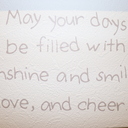 May your days
be filled with
nshine and smil
ove, and cheer